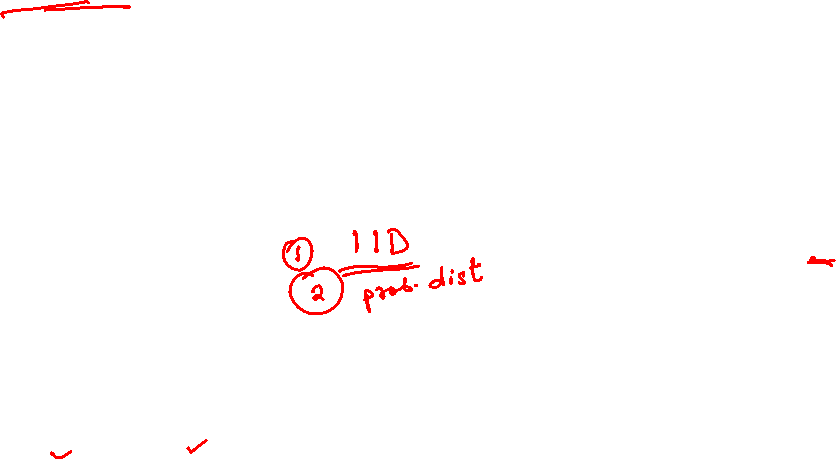 ① IID
② prob. dist